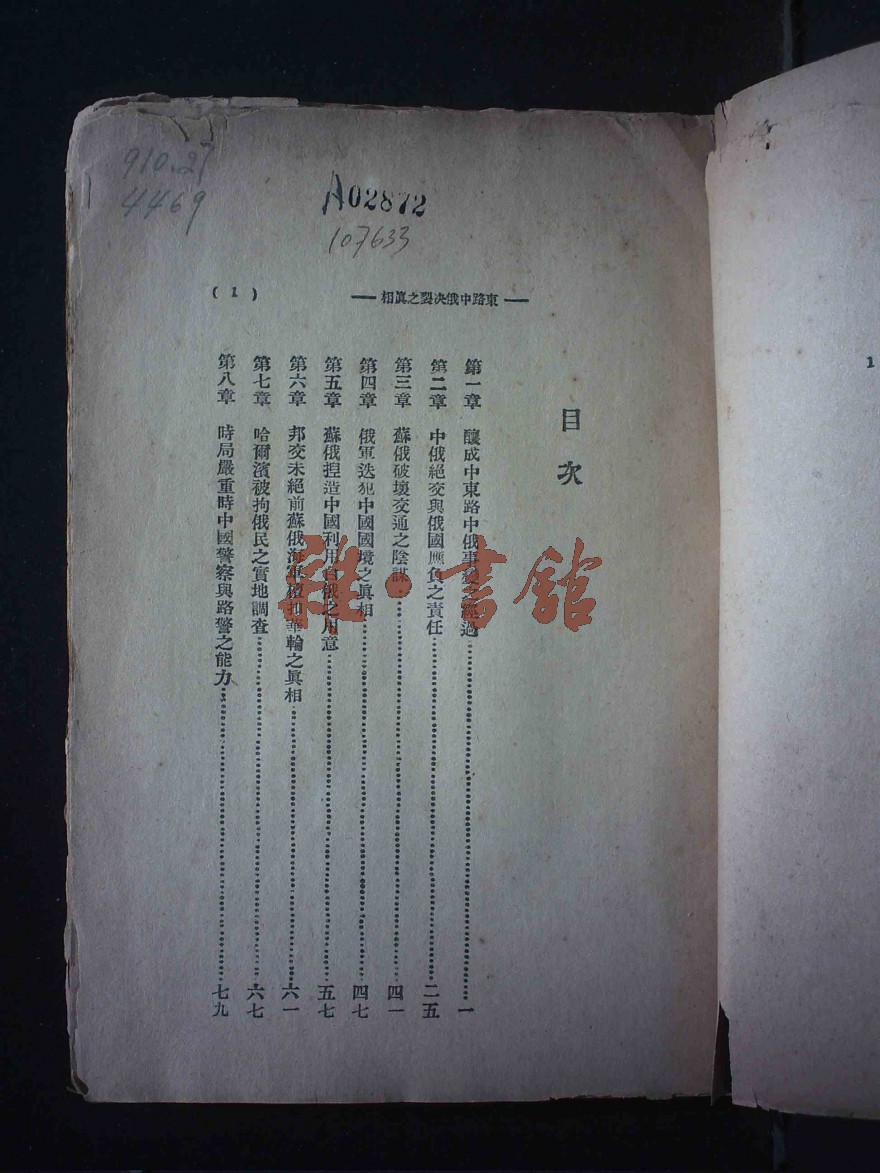 910.27
4469
A02872
107633
東路中俄決裂之眞相
( 1 )
目次
第一章 釀成中東路中俄事變之經過 一
第二章 中俄絕交與俄國應負之責任 二五
第三章 蘇俄破壞交通之陰謀 四一
第四章 俄軍迭犯中國國境之眞相 四七
第五章 蘇俄捏造中國利用白俄之用意 五七
第六章 邦交未絕前蘇俄海軍擅扣華輪之眞相 六一
第七章 哈爾濱被拘俄民之實地調查 六七
第八章 時局嚴重時中國警察與路警之能力 七九
雜·書館
1